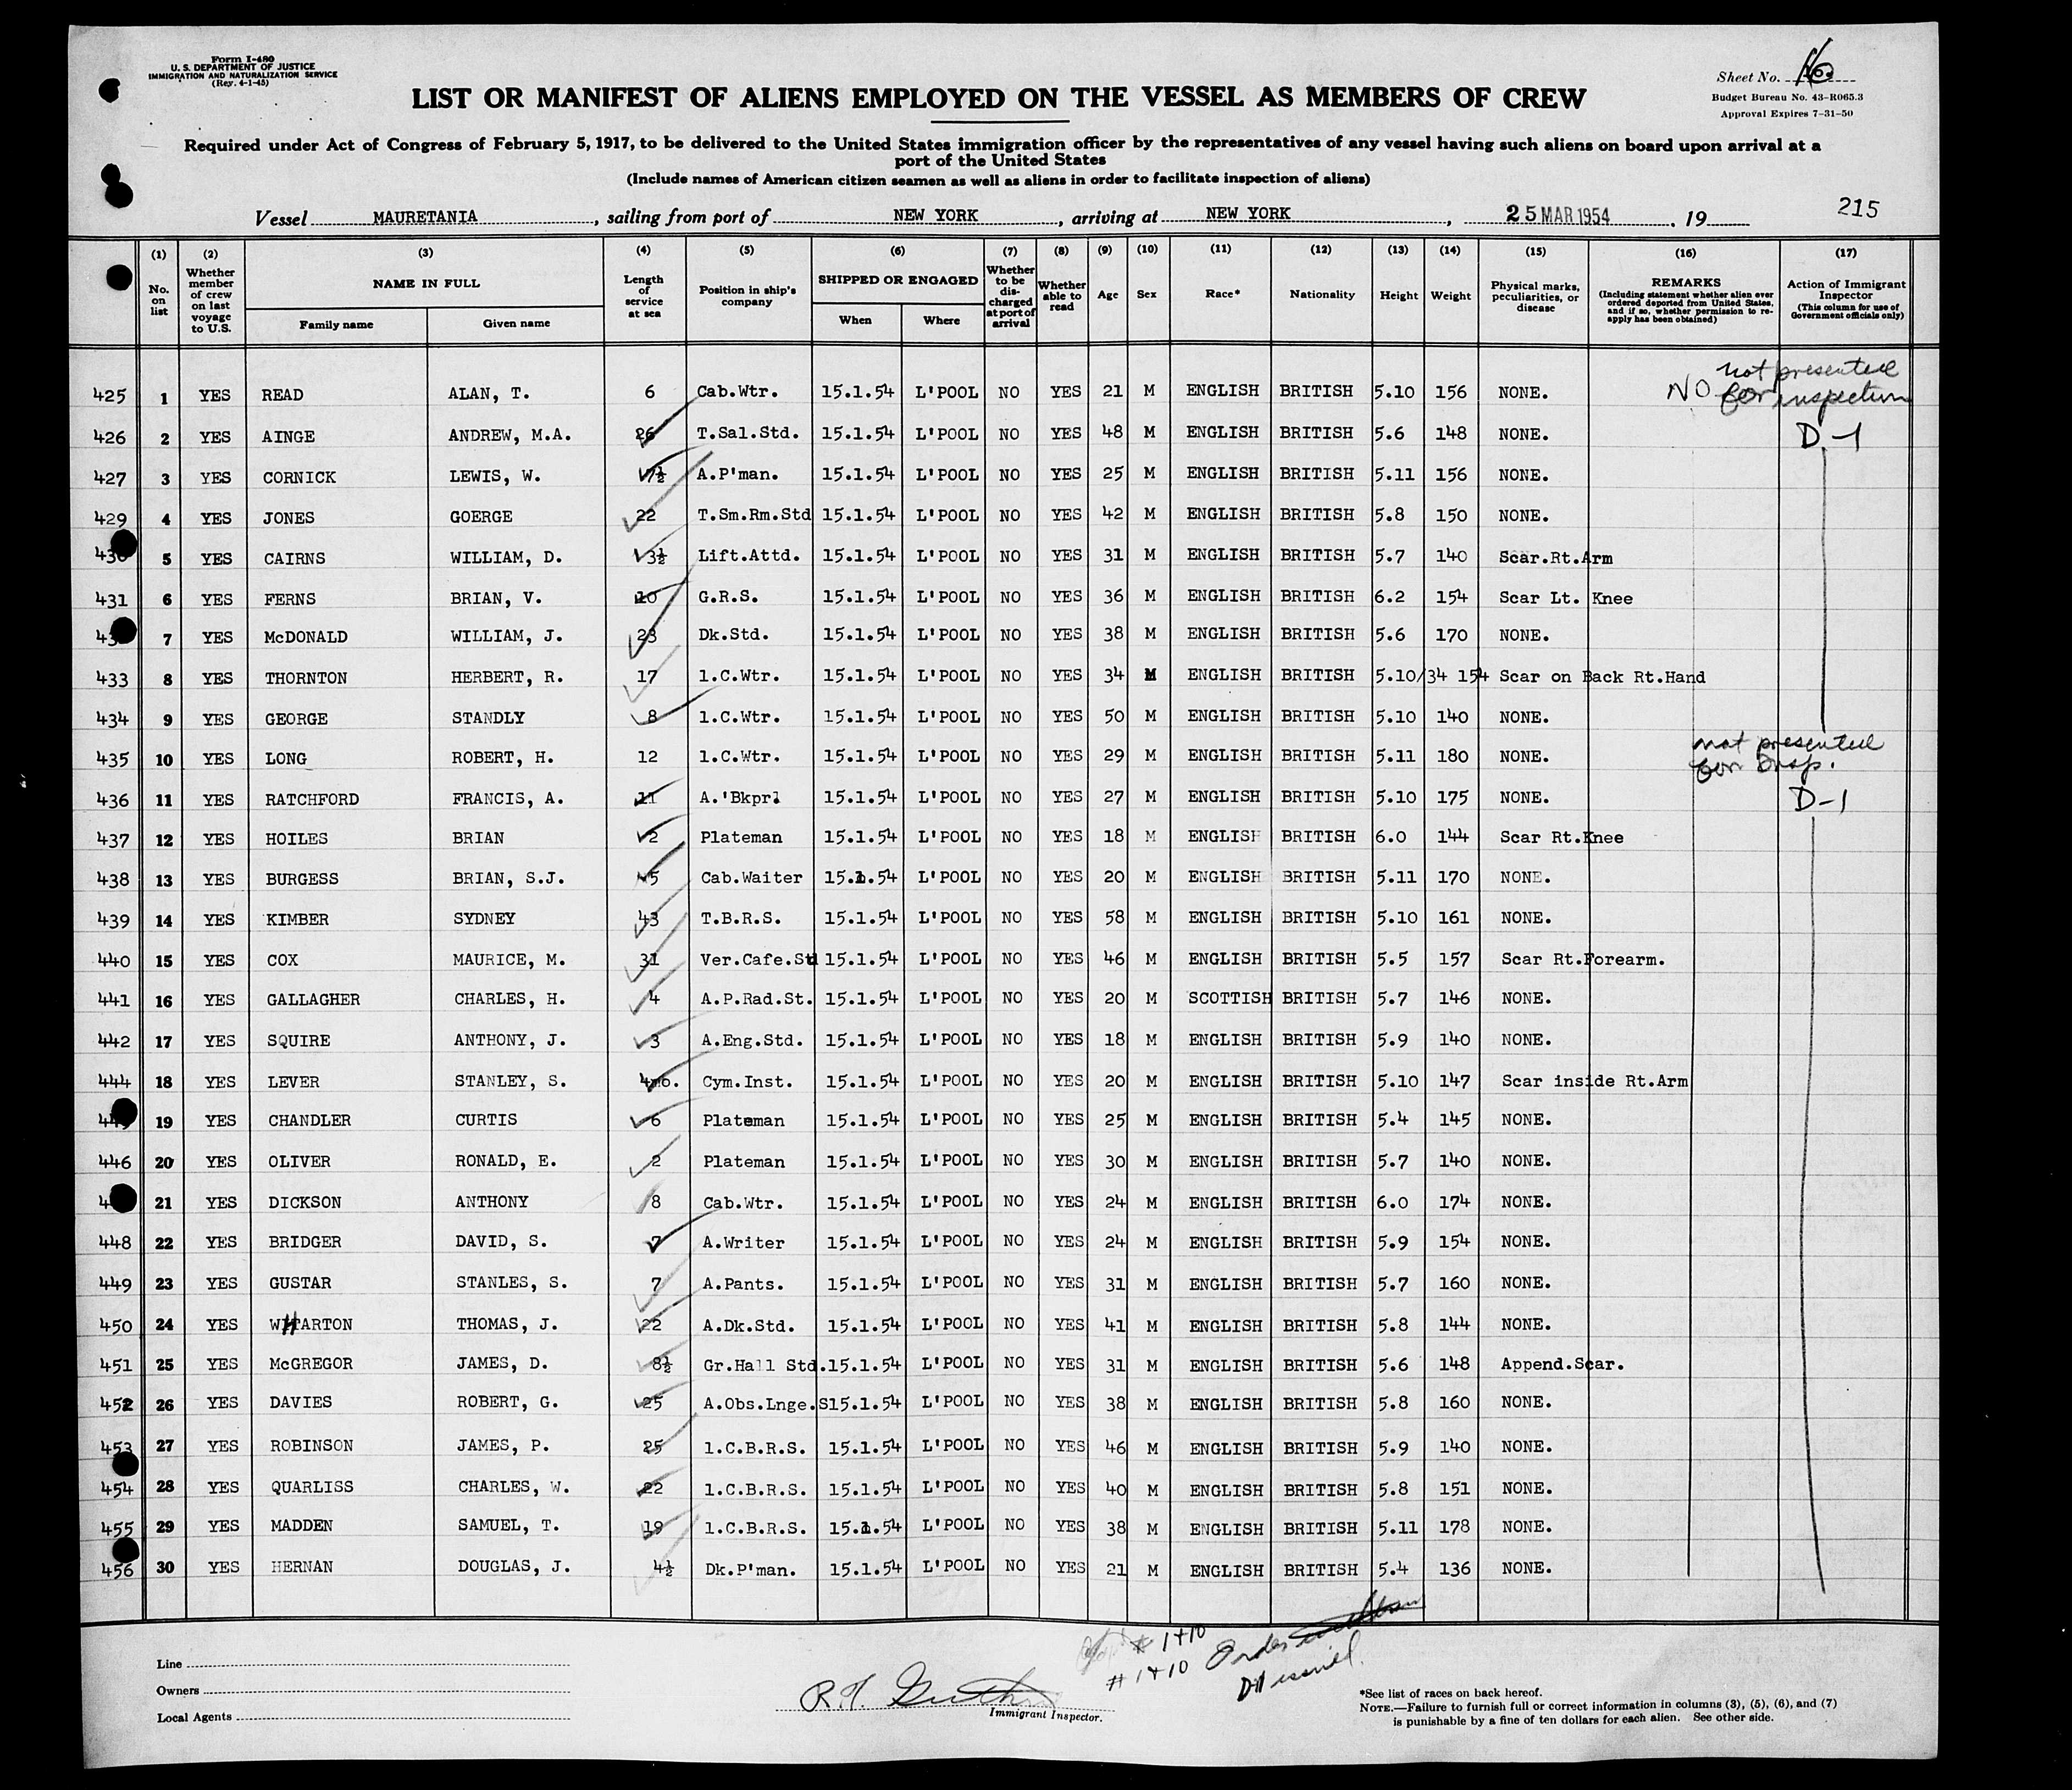 Form I-480
U. S. DEPARTMENT OF JUSTICE
IMMIGRATION AND NATURALIZATION SERVICE
(Rev. 4-1-45)
Sheet No. 16
Budget Bureau No. 43-R065.3
Approval Expires 7-31-50
LIST OR MANIFEST OF ALIENS EMPLOYED ON THE VESSEL AS MEMBERS OF CREW
Required under Act of Congress of February 5, 1917, to be delivered to the United States immigration officer by the representatives of any vessel having such aliens on board upon arrival at a
port of the United States
(Include names of American citizen seamen as well as aliens in order to facilitate inspection of aliens)
Vessel MAURETANIA, sailing from port of NEW YORK, arriving at NEW YORK, 25 MAR 1954, 19 215
(1) No. on list
(2) Whether member of crew on last voyage to U.S.
(3) NAME IN FULL Family name Given name
(4) Length of service at sea
(5) Position in ship's company
(6) SHIPPED OR ENGAGED When Where
(7) Whether to be discharged at port of arrival
(8) Whether able to read
(9) Age
(10) Sex
(11) Race*
(12) Nationality
(13) Height
(14) Weight
(15) Physical marks, peculiarities, or disease
(16) REMARKS (Including statement whether alien ever ordered deported from United States, and if so, whether permission to re-apply has been obtained)
(17) Action of Immigrant Inspector (This column for use of Government officials only)
425 1 YES READ ALAN, T. 6 Cab.Wtr. 15.1.54 L'POOL NO YES 21 M ENGLISH BRITISH 5.10 156 NONE. NO not presented for inspection
426 2 YES AINGE ANDREW, M.A. 26 T.Sal.Std. 15.1.54 L'POOL NO YES 48 M ENGLISH BRITISH 5.6 148 NONE. D-1
427 3 YES CORNICK LEWIS, W. 7½ A.P'man. 15.1.54 L'POOL NO YES 25 M ENGLISH BRITISH 5.11 156 NONE.
429 4 YES JONES GOERGE 22 T.Sm.Rm.Std 15.1.54 L'POOL NO YES 42 M ENGLISH BRITISH 5.8 150 NONE.
430 5 YES CAIRNS WILLIAM, D. 3½ Lift.Attd. 15.1.54 L'POOL NO YES 31 M ENGLISH BRITISH 5.7 140 Scar.Rt.Arm
431 6 YES FERNS BRIAN, V. 10 G.R.S. 15.1.54 L'POOL NO YES 36 M ENGLISH BRITISH 6.2 154 Scar Lt. Knee
7 YES McDONALD WILLIAM, J. 23 Dk.Std. 15.1.54 L'POOL NO YES 38 M ENGLISH BRITISH 5.6 170 NONE.
433 8 YES THORNTON HERBERT, R. 17 1.C.Wtr. 15.1.54 L'POOL NO YES 34 M ENGLISH BRITISH 5.10/34 154 Scar on Back Rt.Hand
434 9 YES GEORGE STANDLY 8 1.C.Wtr. 15.1.54 L'POOL NO YES 50 M ENGLISH BRITISH 5.10 140 NONE.
435 10 YES LONG ROBERT, H. 12 1.C.Wtr. 15.1.54 L'POOL NO YES 29 M ENGLISH BRITISH 5.11 180 NONE. not presented for Insp.
436 11 YES RATCHFORD FRANCIS, A. 11 A.'Bkpr. 15.1.54 L'POOL NO YES 27 M ENGLISH BRITISH 5.10 175 NONE. D-1
437 12 YES HOILES BRIAN 2 Plateman 15.1.54 L'POOL NO YES 18 M ENGLISH BRITISH 6.0 144 Scar Rt.Knee
438 13 YES BURGESS BRIAN, S.J. 5 Cab.Waiter 15.1.54 L'POOL NO YES 20 M ENGLISH BRITISH 5.11 170 NONE.
439 14 YES KIMBER SYDNEY 43 T.B.R.S. 15.1.54 L'POOL NO YES 58 M ENGLISH BRITISH 5.10 161 NONE.
440 15 YES COX MAURICE, M. 31 Ver.Cafe.Std 15.1.54 L'POOL NO YES 46 M ENGLISH BRITISH 5.5 157 Scar Rt.Forearm.
441 16 YES GALLAGHER CHARLES, H. 4 A.P.Rad.St. 15.1.54 L'POOL NO YES 20 M SCOTTISH BRITISH 5.7 146 NONE.
442 17 YES SQUIRE ANTHONY, J. 3 A.Eng.Std. 15.1.54 L'POOL NO YES 18 M ENGLISH BRITISH 5.9 140 NONE.
444 18 YES LEVER STANLEY, S. 4mo. Cym.Inst. 15.1.54 L'POOL NO YES 20 M ENGLISH BRITISH 5.10 147 Scar inside Rt.Arm
445 19 YES CHANDLER CURTIS 6 Plateman 15.1.54 L'POOL NO YES 25 M ENGLISH BRITISH 5.4 145 NONE.
446 20 YES OLIVER RONALD, E. 2 Plateman 15.1.54 L'POOL NO YES 30 M ENGLISH BRITISH 5.7 140 NONE.
21 YES DICKSON ANTHONY 8 Cab.Wtr. 15.1.54 L'POOL NO YES 24 M ENGLISH BRITISH 6.0 174 NONE.
448 22 YES BRIDGER DAVID, S. 7 A.Writer 15.1.54 L'POOL NO YES 24 M ENGLISH BRITISH 5.9 154 NONE.
449 23 YES GUSTAR STANLES, S. 7 A.Pants. 15.1.54 L'POOL NO YES 31 M ENGLISH BRITISH 5.7 160 NONE.
450 24 YES WHARTON THOMAS, J. 22 A.Dk.Std. 15.1.54 L'POOL NO YES 41 M ENGLISH BRITISH 5.8 144 NONE.
451 25 YES McGREGOR JAMES, D. 8½ Gr.Hall Std. 15.1.54 L'POOL NO YES 31 M ENGLISH BRITISH 5.6 148 Append.Scar.
452 26 YES DAVIES ROBERT, G. 25 A.Obs.Lnge.S 15.1.54 L'POOL NO YES 38 M ENGLISH BRITISH 5.8 160 NONE.
453 27 YES ROBINSON JAMES, P. 25 1.C.B.R.S. 15.1.54 L'POOL NO YES 46 M ENGLISH BRITISH 5.9 140 NONE.
454 28 YES QUARLISS CHARLES, W. 22 1.C.B.R.S. 15.1.54 L'POOL NO YES 40 M ENGLISH BRITISH 5.8 151 NONE.
455 29 YES MADDEN SAMUEL, T. 19 1.C.B.R.S. 15.1.54 L'POOL NO YES 38 M ENGLISH BRITISH 5.11 178 NONE.
456 30 YES HERNAN DOUGLAS, J. 4½ Dk.P'man. 15.1.54 L'POOL NO YES 21 M ENGLISH BRITISH 5.4 136 NONE.
# 1+10
# 1+10 Order
issued
Line
Owners
Local Agents
Immigrant Inspector.
*See list of races on back hereof.
NOTE.—Failure to furnish full or correct information in columns (3), (5), (6), and (7)
is punishable by a fine of ten dollars for each alien. See other side.